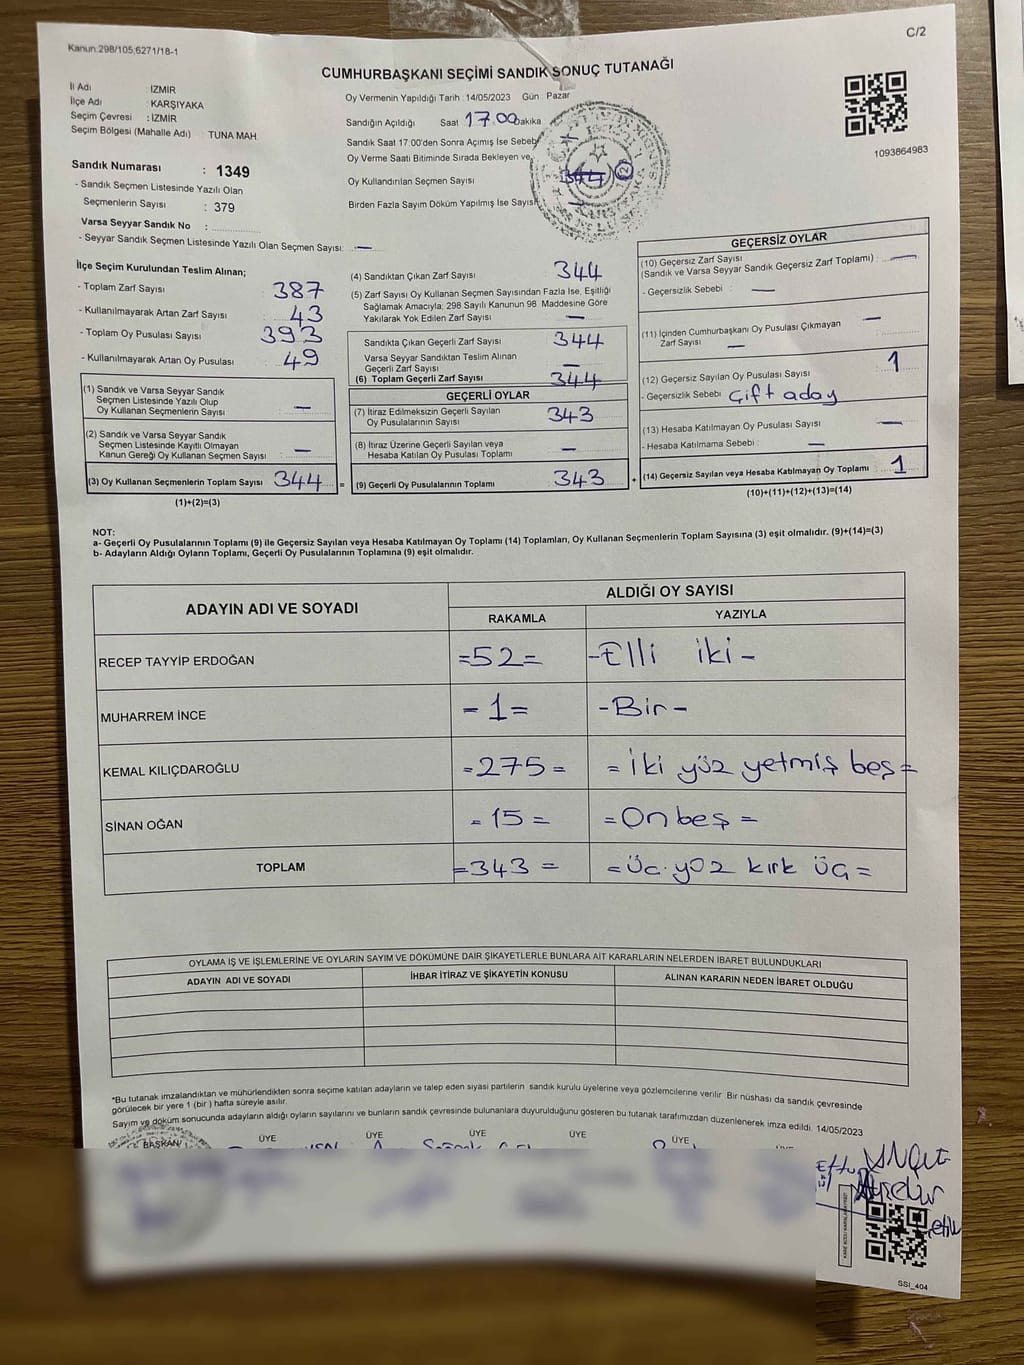 Kanun:298/105,6271/18-1
C/2
CUMHURBAŞKANI SEÇİMİ SANDIK SONUÇ TUTANAĞI
İl Adı : İZMİR
İlçe Adı : KARŞIYAKA
Seçim Çevresi : İZMİR
Seçim Bölgesi (Mahalle Adı) : TUNA MAH
Sandık Numarası : 1349
- Sandık Seçmen Listesinde Yazılı Olan
Seçmenlerin Sayısı : 379
Varsa Seyyar Sandık No :
- Seyyar Sandık Seçmen Listesinde Yazılı Olan Seçmen Sayısı: —
Oy Vermenin Yapıldığı Tarih :14/05/2023 Gün : Pazar
Sandığın Açıldığı Saat 17.00 Dakika
Sandık Saat 17:00'den Sonra Açımış İse Sebeb
Oy Verme Saati Bitiminde Sırada Bekleyen ve
Oy Kullandırılan Seçmen Sayısı 344
Birden Fazla Sayım Döküm Yapılmış İse Sayıs —
1093864983
İlçe Seçim Kurulundan Teslim Alınan;
- Toplam Zarf Sayısı : 387
- Kullanılmayarak Artan Zarf Sayısı : 43
- Toplam Oy Pusulası Sayısı : 393
- Kullanılmayarak Artan Oy Pusulası : 49
(1) Sandık ve Varsa Seyyar Sandık
Seçmen Listesinde Yazılı Olup
Oy Kullanan Seçmenlerin Sayısı : —
(2) Sandık ve Varsa Seyyar Sandık
Seçmen Listesinde Kayıtlı Olmayan
Kanun Gereği Oy Kullanan Seçmen Sayısı : —
(3) Oy Kullanan Seçmenlerin Toplam Sayısı : 344
(1)+(2)=(3)
(4) Sandıktan Çıkan Zarf Sayısı : 344
(5) Zarf Sayısı Oy Kullanan Seçmen Sayısından Fazla İse, Eşitliği
Sağlamak Amacıyla; 298 Sayılı Kanunun 98. Maddesine Göre
Yakılarak Yok Edilen Zarf Sayısı : —
Sandıkta Çıkan Geçerli Zarf Sayısı : 344
Varsa Seyyar Sandıktan Teslim Alınan
Geçerli Zarf Sayısı : —
(6) Toplam Geçerli Zarf Sayısı : 344
GEÇERLİ OYLAR
(7) İtiraz Edilmeksizin Geçerli Sayılan
Oy Pusulalarının Sayısı : 343
(8) İtiraz Üzerine Geçerli Sayılan veya
Hesaba Katılan Oy Pusulası Toplamı : —
(9) Geçerli Oy Pusulalarının Toplamı : 343
GEÇERSİZ OYLAR
(10) Geçersiz Zarf Sayısı
(Sandık ve Varsa Seyyar Sandık Geçersiz Zarf Toplamı) : —
- Geçersizlik Sebebi : —
(11) İçinden Cumhurbaşkanı Oy Pusulası Çıkmayan
Zarf Sayısı : —
(12) Geçersiz Sayılan Oy Pusulası Sayısı : 1
- Geçersizlik Sebebi : Çift aday
(13) Hesaba Katılmayan Oy Pusulası Sayısı : —
- Hesaba Katılmama Sebebi : —
(14) Geçersiz Sayılan veya Hesaba Katılmayan Oy Toplamı : 1
(10)+(11)+(12)+(13)=(14)
NOT:
a- Geçerli Oy Pusulalarının Toplamı (9) ile Geçersiz Sayılan veya Hesaba Katılmayan Oy Toplamı (14) Toplamları, Oy Kullanan Seçmenlerin Toplam Sayısına (3) eşit olmalıdır. (9)+(14)=(3)
b- Adayların Aldığı Oyların Toplamı, Geçerli Oy Pusulalarının Toplamına (9) eşit olmalıdır.
ADAYIN ADI VE SOYADI ALDIĞI OY SAYISI
RAKAMLA YAZIYLA
RECEP TAYYİP ERDOĞAN =52= -Elli iki-
MUHARREM İNCE -1= -Bir-
KEMAL KILIÇDAROĞLU =275= =İki yüz yetmiş beş=
SİNAN OĞAN =15= =On beş=
TOPLAM =343= =Üç yüz kırk üç=
OYLAMA İŞ VE İŞLEMLERİNE VE OYLARIN SAYIM VE DÖKÜMÜNE DAİR ŞİKAYETLERLE BUNLARA AİT KARARLARIN NELERDEN İBARET BULUNDUKLARI
ADAYIN ADI VE SOYADI İHBAR İTİRAZ VE ŞİKAYETİN KONUSU ALINAN KARARIN NEDEN İBARET OLDUĞU
*Bu tutanak imzalandıktan ve mühürlendikten sonra seçime katılan adayların ve talep eden siyasi partilerin sandık kurulu üyelerine veya gözlemcilerine verilir. Bir nüshası da sandık çevresinde
görülecek bir yere 1 (bir) hafta süreyle asılır.
Sayım ve döküm sonucunda adayların aldığı oyların sayılarını ve bunların sandık çevresinde bulunanlara duyurulduğunu gösteren bu tutanak tarafımızdan düzenlenerek imza edildi. 14/05/2023
BAŞKAN ÜYE ÜYE ÜYE ÜYE ÜYE
SSI_404